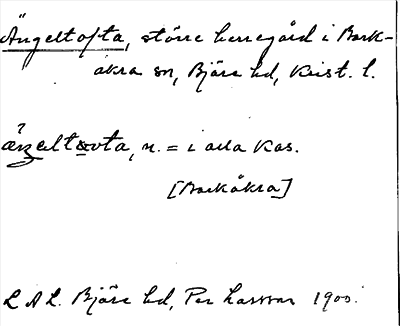 Ängeltofta, större herregård i Bark-
åkra sn, Bjäre hd, Krist. l.
n. = i alla kas.
[Barkåkra]
L A L. Bjäre hd, Per Larsson 1900.